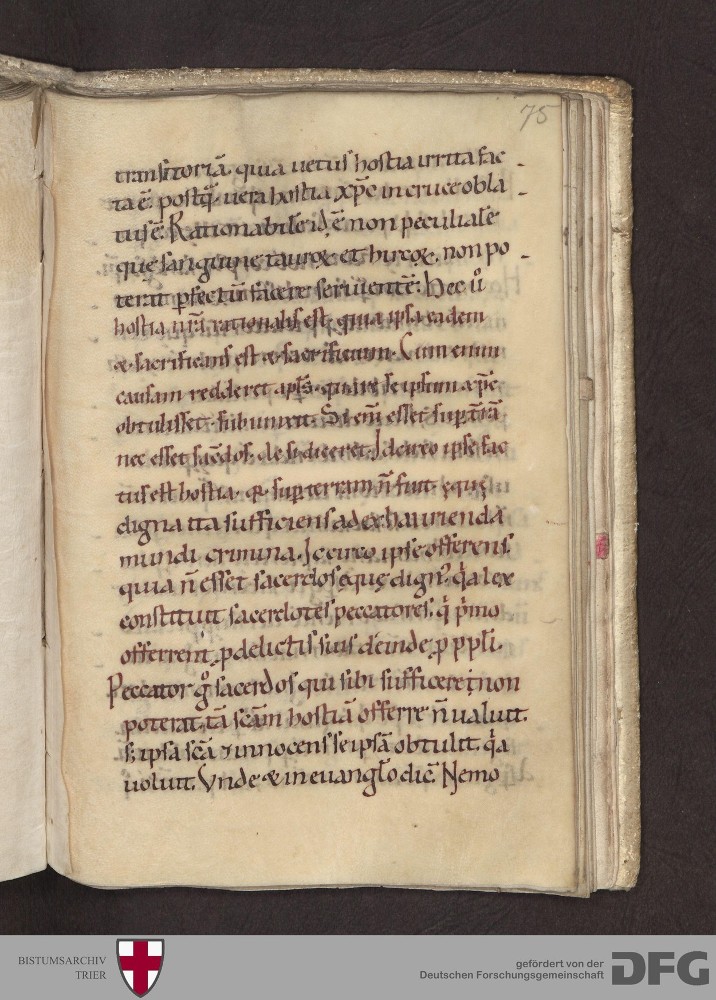 75
transitoriā. quia uetus hostia irrita fac
ta ē. postq̄ uera hostia xp̄c in cruce obla
tus ē. Rationabilē id ē non peculialē
quę sanguine tauroꝝ et hircoꝝ. non po
terat p̄fectū facere seruientē. Hec ů
hostia nr̄a rationabił est. quia ipsa eadem
& sacrificans est & sacrificium. Cum enim
causam redderet apłs. quare se ipsum xp̄c
obtulisset. subiunxit. Si enī esset sup̄ t̄rā
nec esset sac̄dos. ac si diceret. Idcirco ipse fac
tus est hostia. quia sup terram n̄ fuit ęquę
digna ita sufficiens ad exhaurienda
mundi crimina. Iccirco ipse offerens.
quia n̄ esset sacerdos ęquę dignꝰ. q̇a lex
constituit sacerdotes peccatores. q̇ ṗmo
offerrent ꝓ delictis suis deinde ꝓ ppłi.
Peccator g̊ sacerdos qui sibi sufficere non
poterat. tā sc̄am hostiā offerre n̄ ualuit.
s; ipsa sc̄a ⁊ innocens se ipsā obtulit. q̇a
uoluit. Vnde & in euangło dic̄. Nemo
BISTUMSARCHIV
TRIER
gefördert von der
Deutschen Forschungsgemeinschaft
DFG